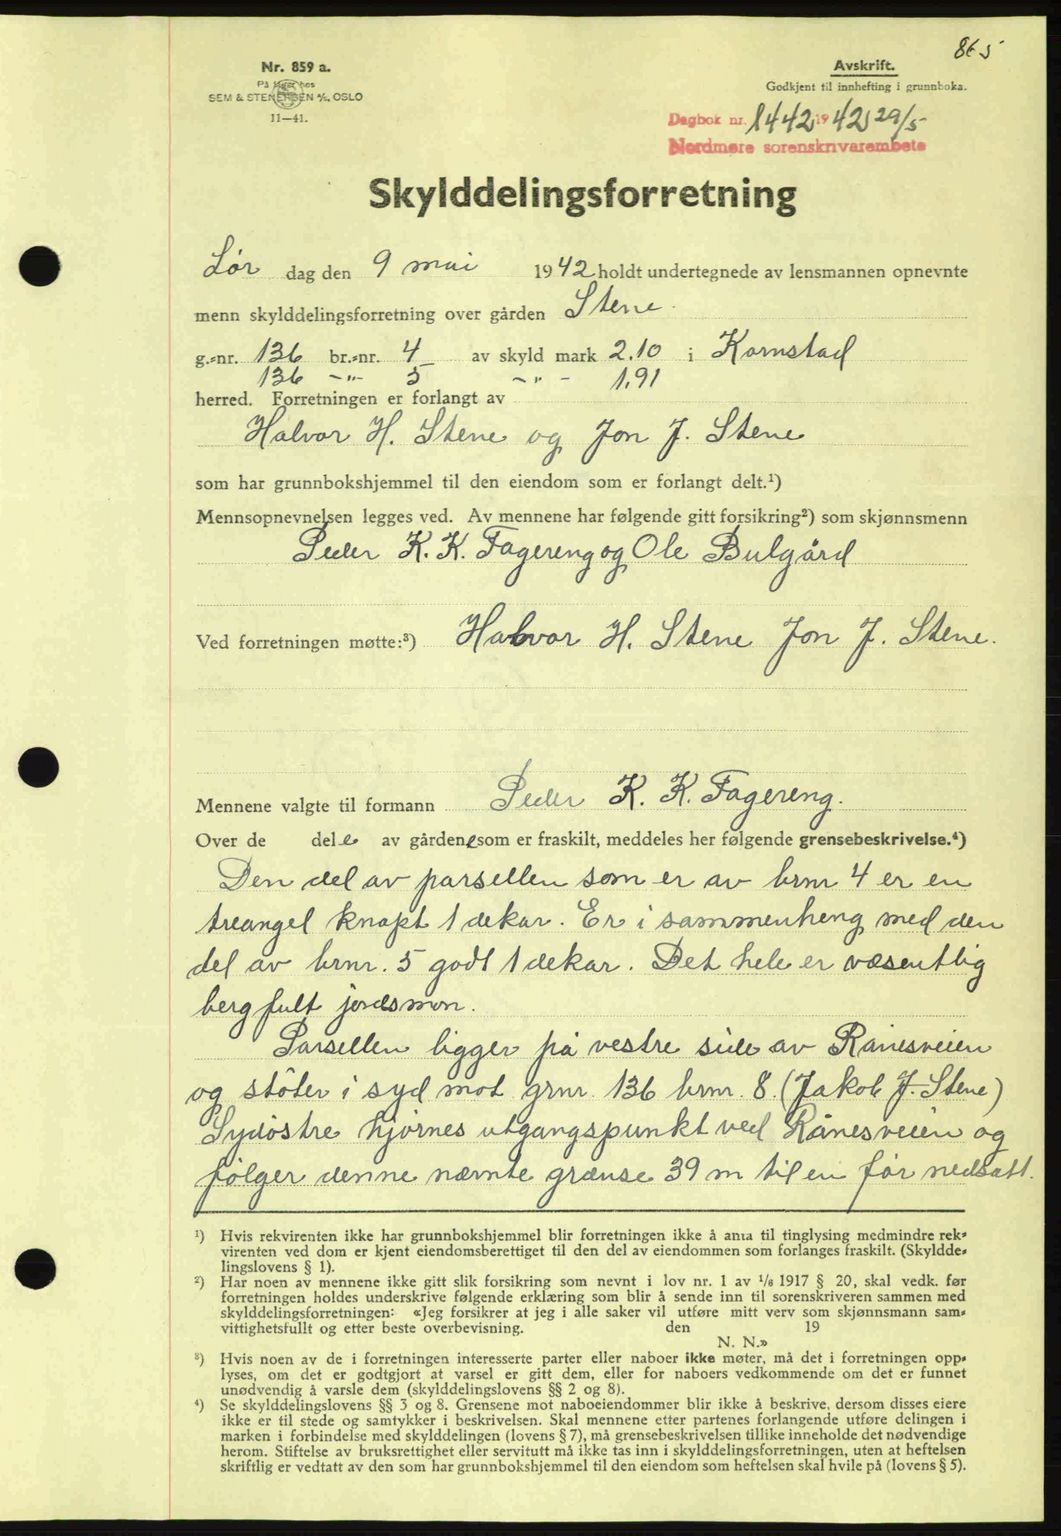 865
Nr. 859 a.
På lager hos
SEM & STENERSEN A/S, OSLO
11—41.
Avskrift.
Godkjent til innhefting i grunnboka.
Dagbok nr. 1442 1942 29/5
Nordmøre sorenskrivarembete
Skylddelingsforretning
Lør dag den 9 mai 1942 holdt undertegnede av lensmannen opnevnte
menn skylddelingsforretning over gården Stene.
g.=nr. 136 br.=nr. 4 av skyld mark 2.10 i Kornstad
136 -"- 5 -"- 1,91
herred. Forretningen er forlangt av
Halvor H. Stene og Jon J. Stene
som har grunnbokshjemmel til den eiendom som er forlangt delt.¹)
Mennsopnevnelsen legges ved. Av mennene har følgende gitt forsikring²) som skjønnsmenn
Peder K. K. Fagereng og Ole Bulgård
Ved forretningen møtte:³) Halvor H. Stene Jon J. Stene.
Mennene valgte til formann Peder K. K. Fagereng.
Over de dele av gårdene som er fraskilt, meddeles her følgende grensebeskrivelse.⁴)
Den del av parsellen som er av brnr 4 er en
treangel knapt 1 dekar. Er i sammenheng med den
del av brnr. 5 godt 1 dekar. Det hele er væsentlig
bergfult jordsmon.
Parsellen ligger på vestre side av Rånesveien
og støter i syd mot grnr. 136 brnr. 8. (Jakob J. Stene)
Sydøstre hjørnes utgangspunkt ved Rånesveien og
følger denne nævnte grænse 39 m til en før nedsatt.
¹) Hvis rekvirenten ikke har grunnbokshjemmel blir forretningen ikke å anta til tinglysing medmindre rek=
virenten ved dom er kjent eiendomsberettiget til den del av eiendommen som forlanges fraskilt. (Skyldde=
lingslovens § 1).
²) Har noen av mennene ikke gitt slik forsikring som nevnt i lov nr. 1 av 1/6 1917 § 20, skal vedk. før
forretningen holdes underskrive følgende erklæring som blir å sende inn til sorenskriveren sammen med
skylddelingsforretningen: «Jeg forsikrer at jeg i alle saker vil utføre mitt verv som skjønnsmann sam=
vittighetsfullt og etter beste overbevisning. den 19
N. N.»
³) Hvis noen av de i forretningen interesserte parter eller naboer ikke møter, må det i forretningen opp=
lyses, om det er godtgjort at varsel er gitt dem, eller for naboers vedkommende om det er funnet
unødvendig å varsle dem (skylddelingslovens §§ 2 og 8).
⁴) Se skylddelingslovens §§ 3 og 8. Grensene mot naboeiendommer blir ikke å beskrive, dersom disses eiere
ikke er til stede og samtykker i beskrivelsen. Skal mennene etter partenes forlangende utføre delingen i
marken i forbindelse med skylddelingen (lovens § 7), må grensebeskrivelsen tillike inneholde det nødvendige
herom. Stiftelse av bruksrettighet eller servitutt må ikke tas inn i skylddelingsforretningen, uten at heftelsen
skriftlig er vedtatt av den som har grunnbokshjemmel til den eiendom som heftelsen skal hvile på (lovens § 5).